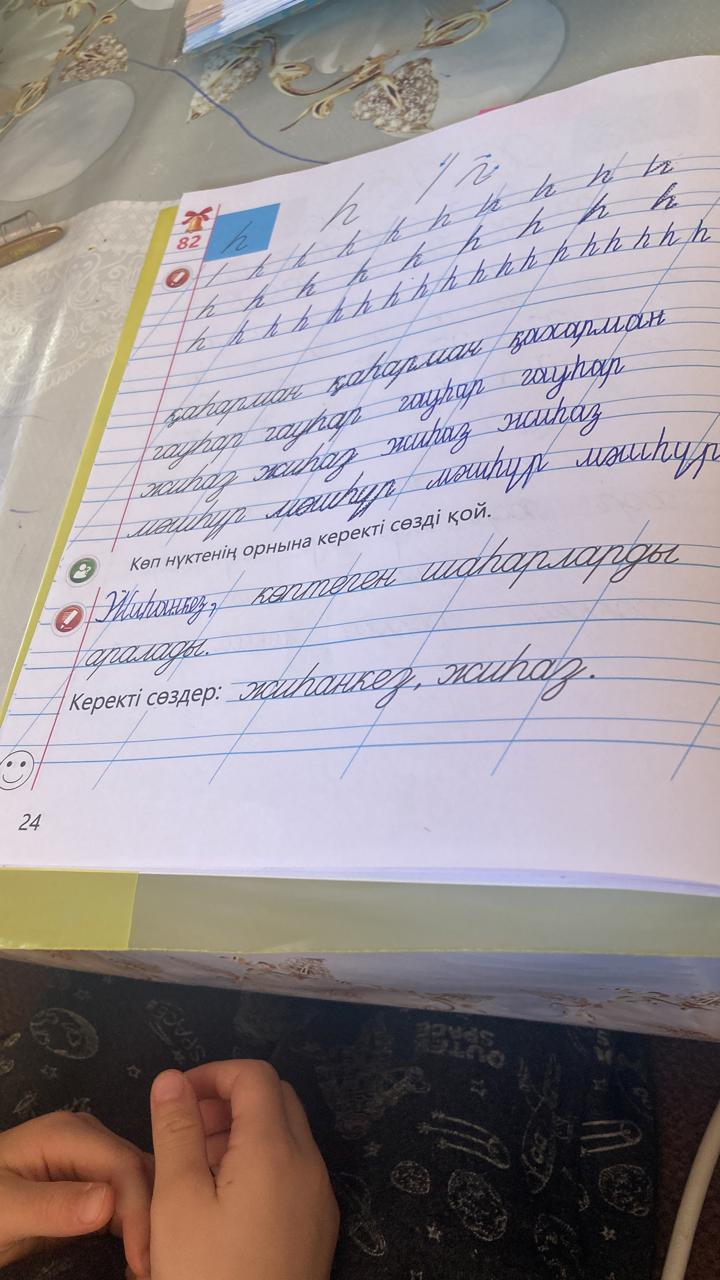 һ һ
82 һ һ һ һ һ һ һ һ һ
һ һ һ һ һ һ һ һ
һ һ һ һ һ һ һ һ һ һ һ һ һ һ һ һ һ һ
қаһарман қаһарман қахарман
гауһар гауһар гауһар гауһар
жиһаз жиһаз жиһаз жиһаз
мәшһүр мәшһүр мәшһүр мәшһүр
Көп нүктенің орнына керекті сөзді қой.
Жиһанкез, көптеген шаһарларды
аралады.
Керекті сөздер: жиһанкез, жиһаз.
24
OUTER
SPACE